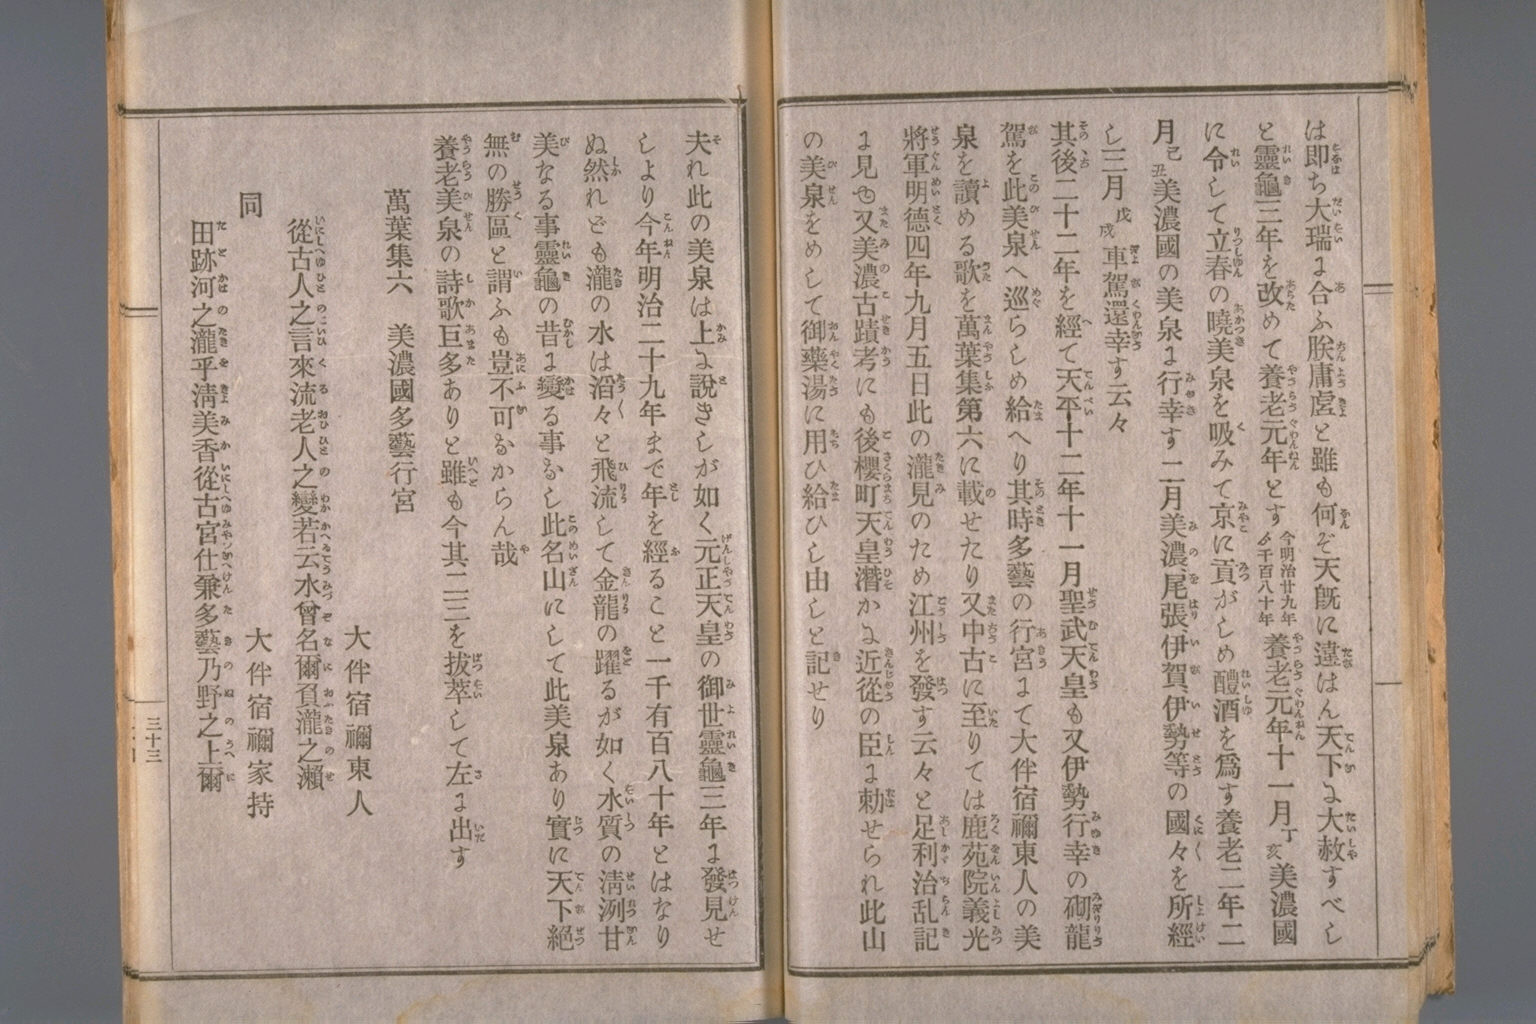 は即ち大瑞に合ふ朕庸虛と雖も何ぞ天旣に違はん天下に大赦すべし
と靈龜三年を改めて養老元年とす今明治廿九年ゟ千百八十年養老元年十一月丁亥美濃國
に令して立春の曉美泉を吸みて京に貢がしめ醴酒を爲す養老二年二
月己丑美濃國の美泉に行幸す二月美濃、尾張伊賀、伊勢等の國々を所經
し三月戊戌車駕還幸す云々
其後二十二年を經て天平十二年十一月聖武天皇も又伊勢行幸の砌龍
駕を此美泉へ巡らしめ給へり其時多藝の行宮にて大伴宿禰東人の美
泉を讀める歌を萬葉集第六に載せたり又中古に至りては鹿苑院義光
將軍明德四年九月五日此の瀧見のため江州を發す云々と足利治乱記
に見ゆ又美濃古蹟考にも後櫻町天皇潛かに近從の臣に勅せられ此山
の美泉をめして御藥湯に用ひ給ひし由しと記せり
夫れ此の美泉は上に說きしが如く元正天皇の御世靈龜三年に發見せ
しより今年明治二十九年まで年を經ること一千有百八十年とはなり
ぬ然れども瀧の水は滔々と飛流して金龍の躍るが如く水質の淸冽甘
美なる事靈龜の昔に變る事なし此名山にして此美泉あり實に天下絕
無の勝區と謂ふも豈不可なからん哉
養老美泉の詩歌巨多ありと雖も今其二三を拔萃して左に出す
萬葉集六　美濃國多藝行宮
大伴宿禰東人
從古人之言來流老人之變若云水曾名爾負瀧之瀨
同　大伴宿禰家持
田跡河之瀧乎淸美香從古宮仕兼多藝乃野之上爾
三十三